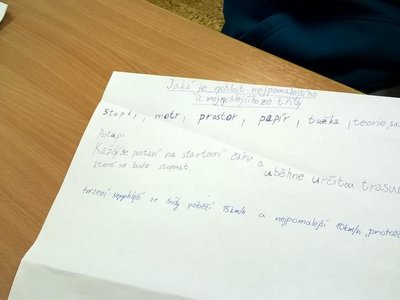 Jaká je rychlost nejpomalejšího
a nejrychlejšího ze třídy
Stopky, metr, prostor, papír, tužka, teorie,
Postup:
Každý se postaví na startovní čáru a uběhne určitou trasu
která se bude stopovat.
tvrzení: Nejrychlejší ze třídy poběží 15km/h a nejpomalejší 10km/h, protože